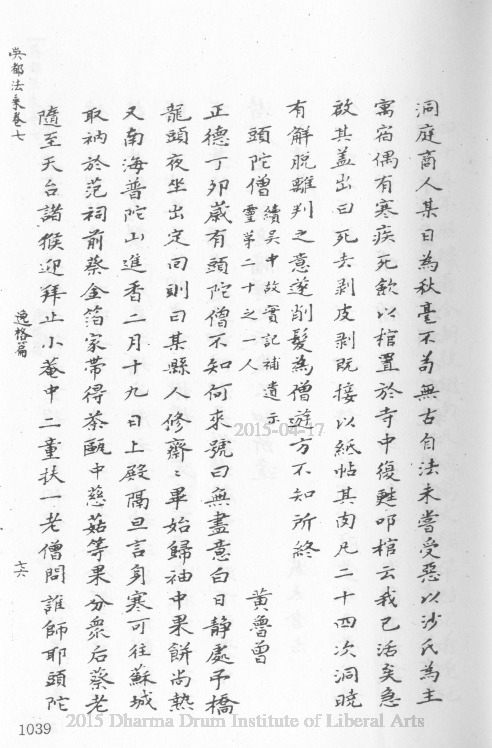 洞庭商人某日為秋毫不苟無古自法未嘗受惡以沙氏為主
寓宿偶有寒疾死歛以棺置於寺中復甦叩棺云我已活矣急
啟其盖出曰死去剥皮剥既接以紙帖其肉凡二十四次洞曉
有解脫離判之意遂削髮為僧遊方不知所終
頭陀僧 續吳中故實記補遺示
靈第二十之一人
黃魯曾
正德丁卯歲有頭陀僧不知何來號曰無盡意白日靜處予橋
龍頭夜坐出定向則曰某縣人修齋〻畢始歸袖中果餅尚熱
又南海普陀山進香二月十九日上殿隔旦言身寒可往蘇城
取衲於范祠前蔡金箔家帶得茶甌中慈菇等果分衆后蔡老
隨至天台諸猴迎拜止小菴中二童扶一老僧問誰師耶頭陀
吳都法乘卷七
逸格篇
六
1039
2015-04-17
2015 Dharma Drum Institute of Liberal Arts